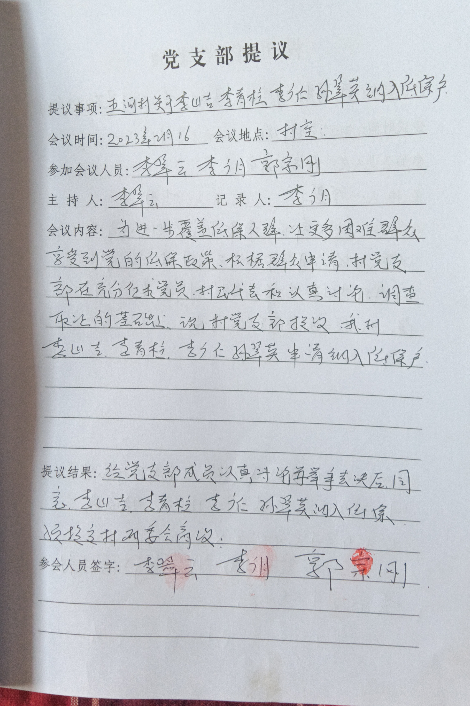 党支部提议
提议事项: 五河村关于李山吉 李有柱 李仁 孙翠英纳入低保户
会议时间: 2023年2月16 会议地点: 村室
参加会议人员: 李翠云 李月 郭宗刚
主持人: 李翠云 记录人: 李月
会议内容: 为进一步覆盖低保人群,让更多困难群众
享受到党的低保政策,根据群众申请,村党支
部在充分征求党员,村民代表和认真讨论,调查
取证的基础上,村党支部提议 我村
李山吉 李有柱 李仁 孙翠英申请纳入低保户
提议结果: 经党支部成员认真讨论并举手表决后同
意 李山吉 李有柱 李仁 孙翠英纳入低保
提交村两委会商议
参会人员签字: 李翠云 李月 郭宗刚